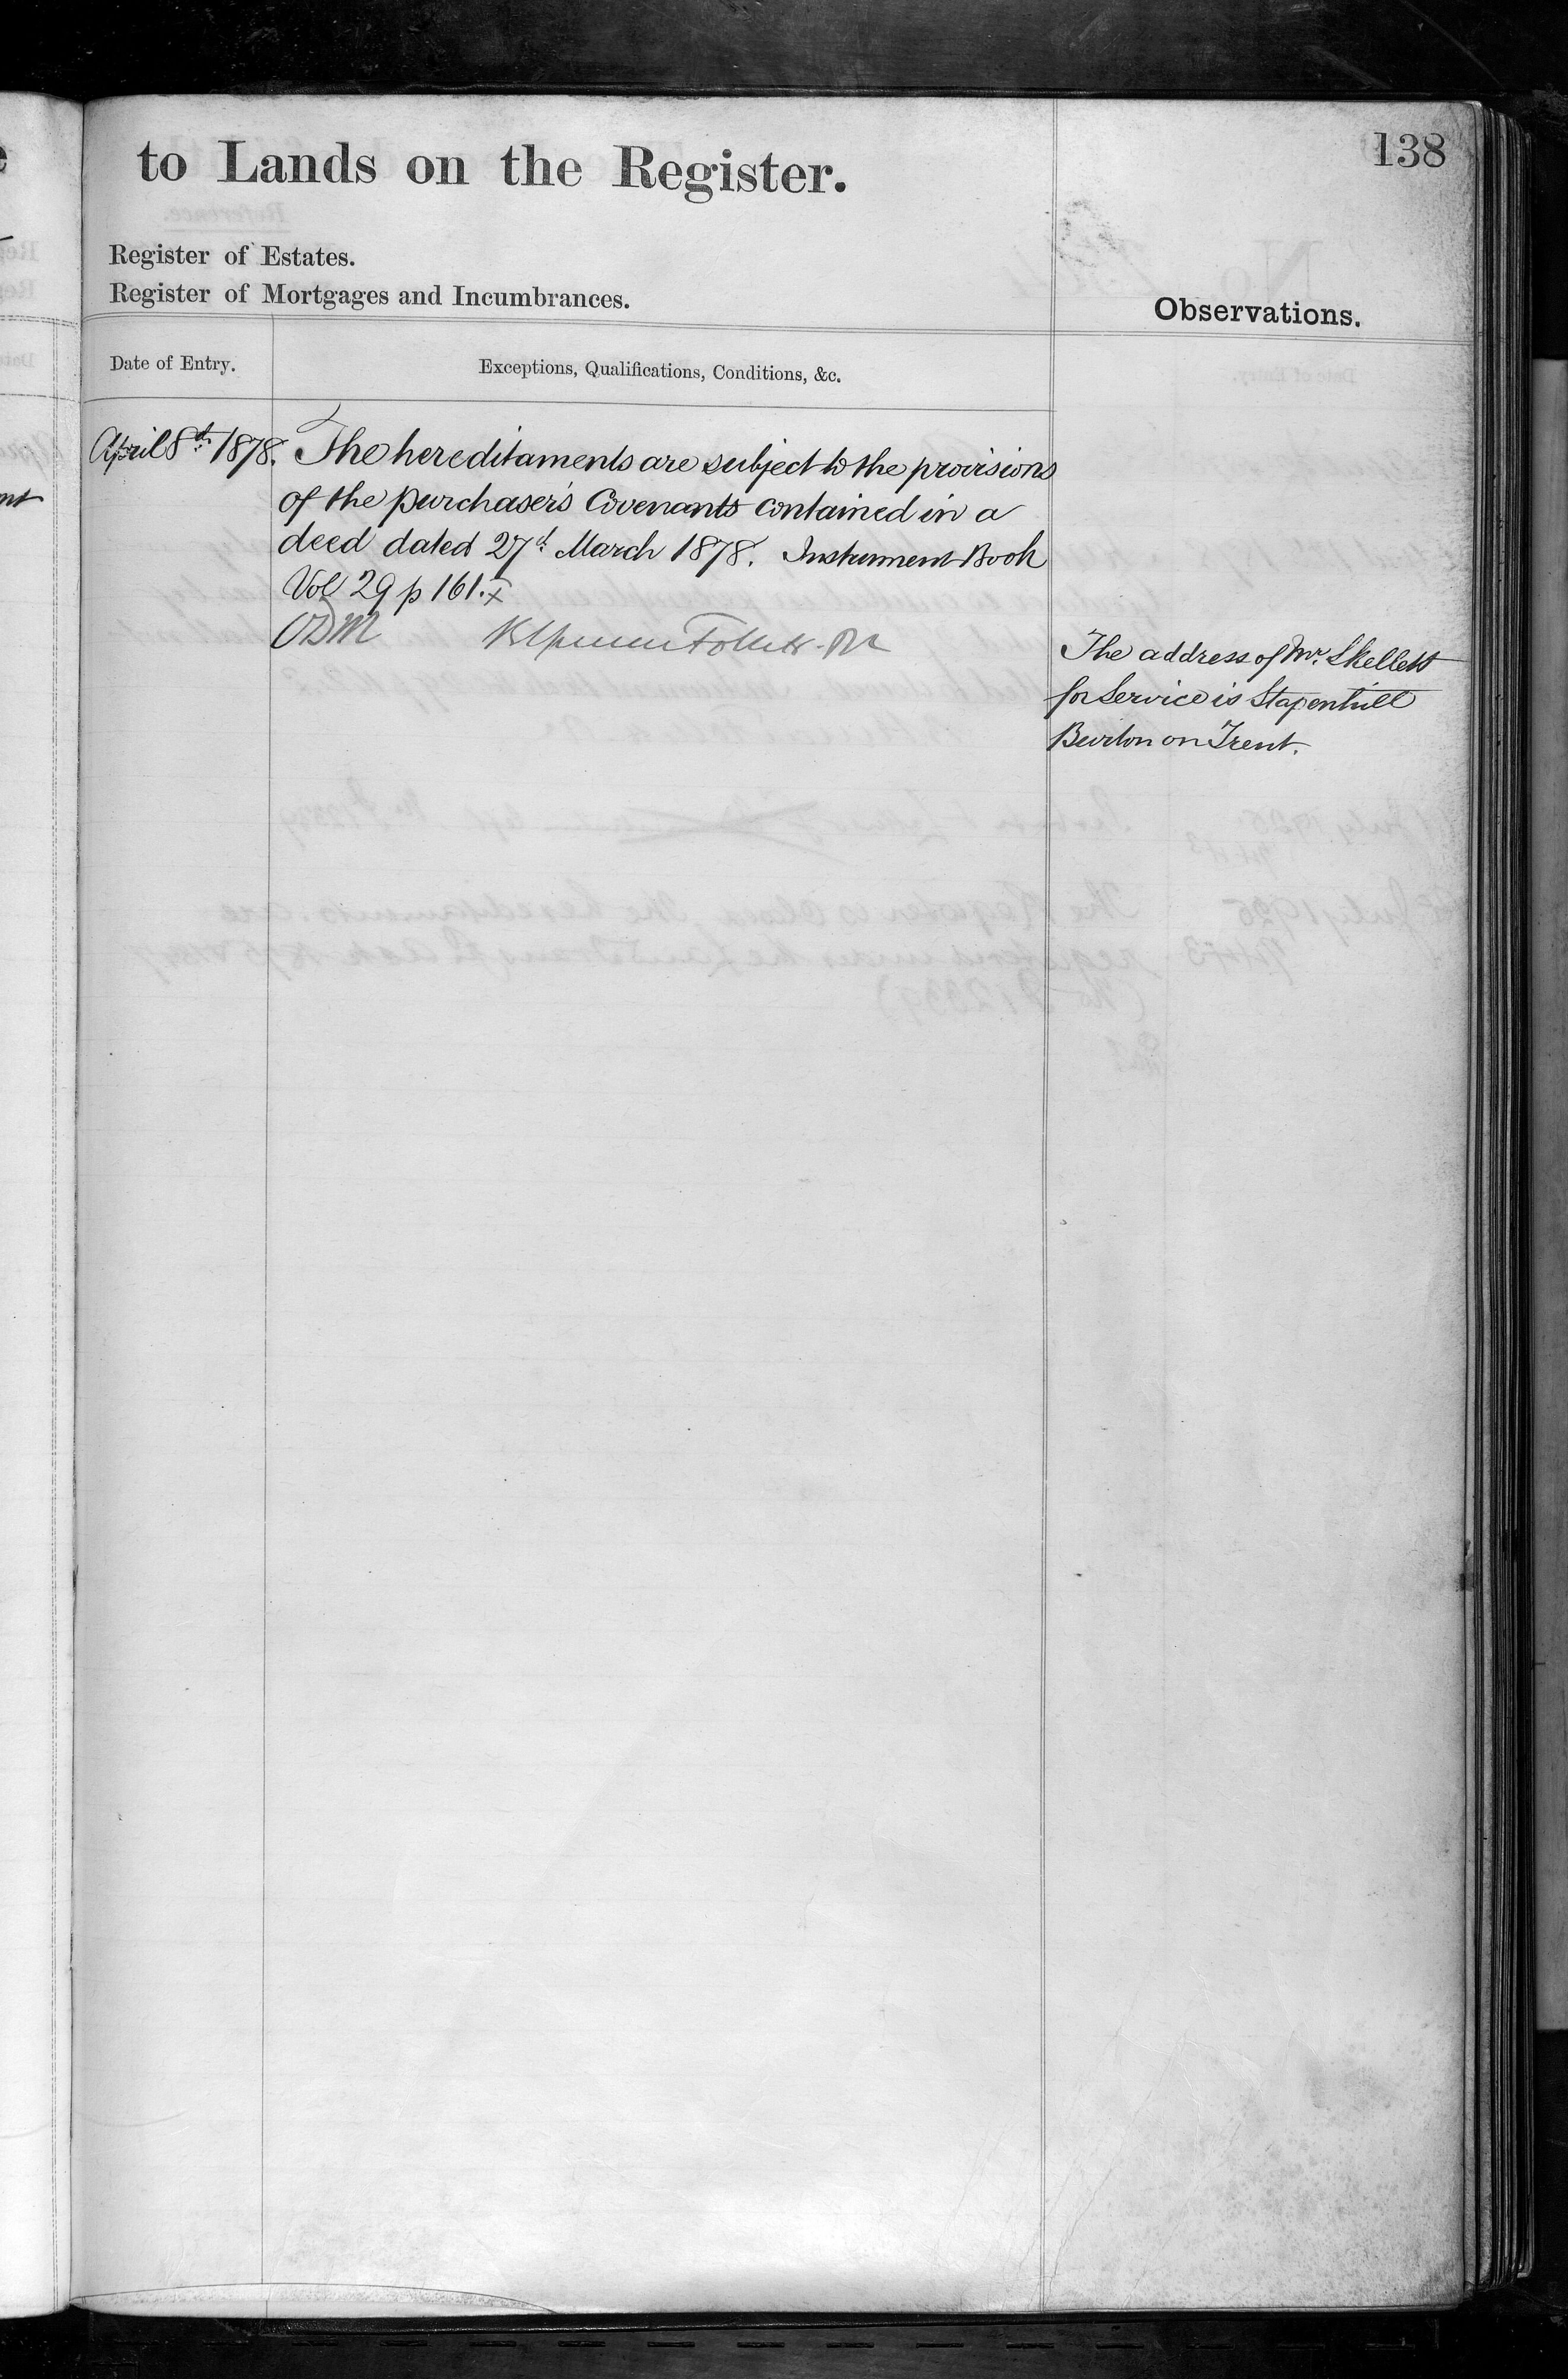 138
to Lands on the Register.
Register of Estates.
Register of Mortgages and Incumbrances.
Observations.
Date of Entry.
Exceptions, Qualifications, Conditions, &c.
April 8th 1878. The hereditaments are subject to the provisions
of the purchaser's Covenants contained in a
deed dated 27th March 1878. Instrument Book
Vol 29 p 161. x
The address of Mr. Skellett
for Service is Stapenhill
Burton on Trent.